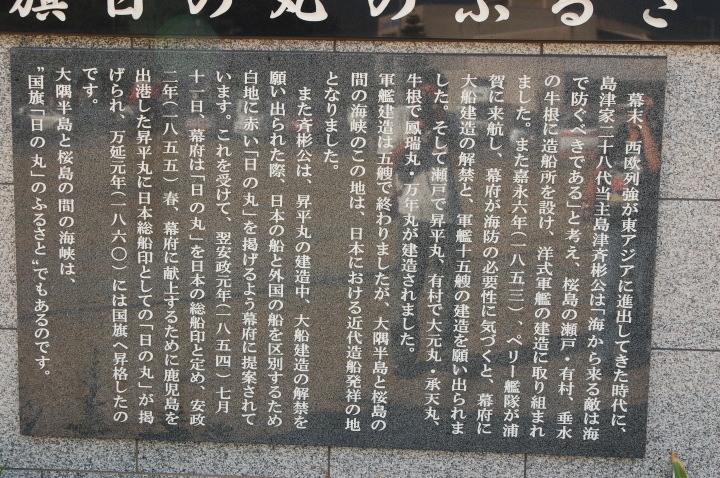 旗日の丸のふるさ
幕末、西欧列強が東アジアに進出してきた時代に、
島津家二十八代当主島津斉彬公は「海から来る敵は海
で防ぐべきである」と考え、桜島の瀬戸・有村、垂水
の牛根に造船所を設け、洋式軍艦の建造に取り組まれ
ました。また嘉永六年(一八五三)、ペリー艦隊が浦
賀に来航し、幕府が海防の必要性に気づくと、幕府に
大船建造の解禁と、軍艦十五艘の建造を願い出られま
した。そして瀬戸で昇平丸、有村で大元丸・承天丸、
牛根で鳳瑞丸・万年丸が建造されました。
軍艦建造は五艘で終わりましたが、大隅半島と桜島の
間の海峡のこの地は、日本における近代造船発祥の地
となりました。
また斉彬公は、昇平丸の建造中、大船建造の解禁を
願い出られた際、日本の船と外国の船を区別するため
白地に赤い「日の丸」を掲げるよう幕府に提案されて
います。これを受けて、翌安政元年(一八五四)七月
十一日、幕府は「日の丸」を日本の総船印と定め、安政
二年(一八五五)春、幕府に献上するために鹿児島を
出港した昇平丸に日本総船印としての「日の丸」が掲
げられ、万延元年(一八六〇)には国旗へ昇格したの
です。
大隅半島と桜島の間の海峡は、
“国旗「日の丸」のふるさと”でもあるのです。